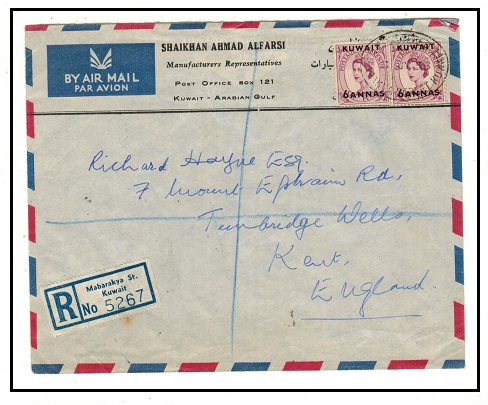 SHAIKHAN AHMAD ALFARSI
Manufacturers Representatives
POST OFFICE BOX 121
KUWAIT - ARABIAN GULF
BY AIR MAIL
PAR AVION
KUWAIT
6 ANNAS
KUWAIT
6 ANNAS
Richard Hayne Esq.
7 Mount Ephraim Rd,
Tunbridge Wells,
Kent,
England.
R
Mabarakya St.
Kuwait
No 5267